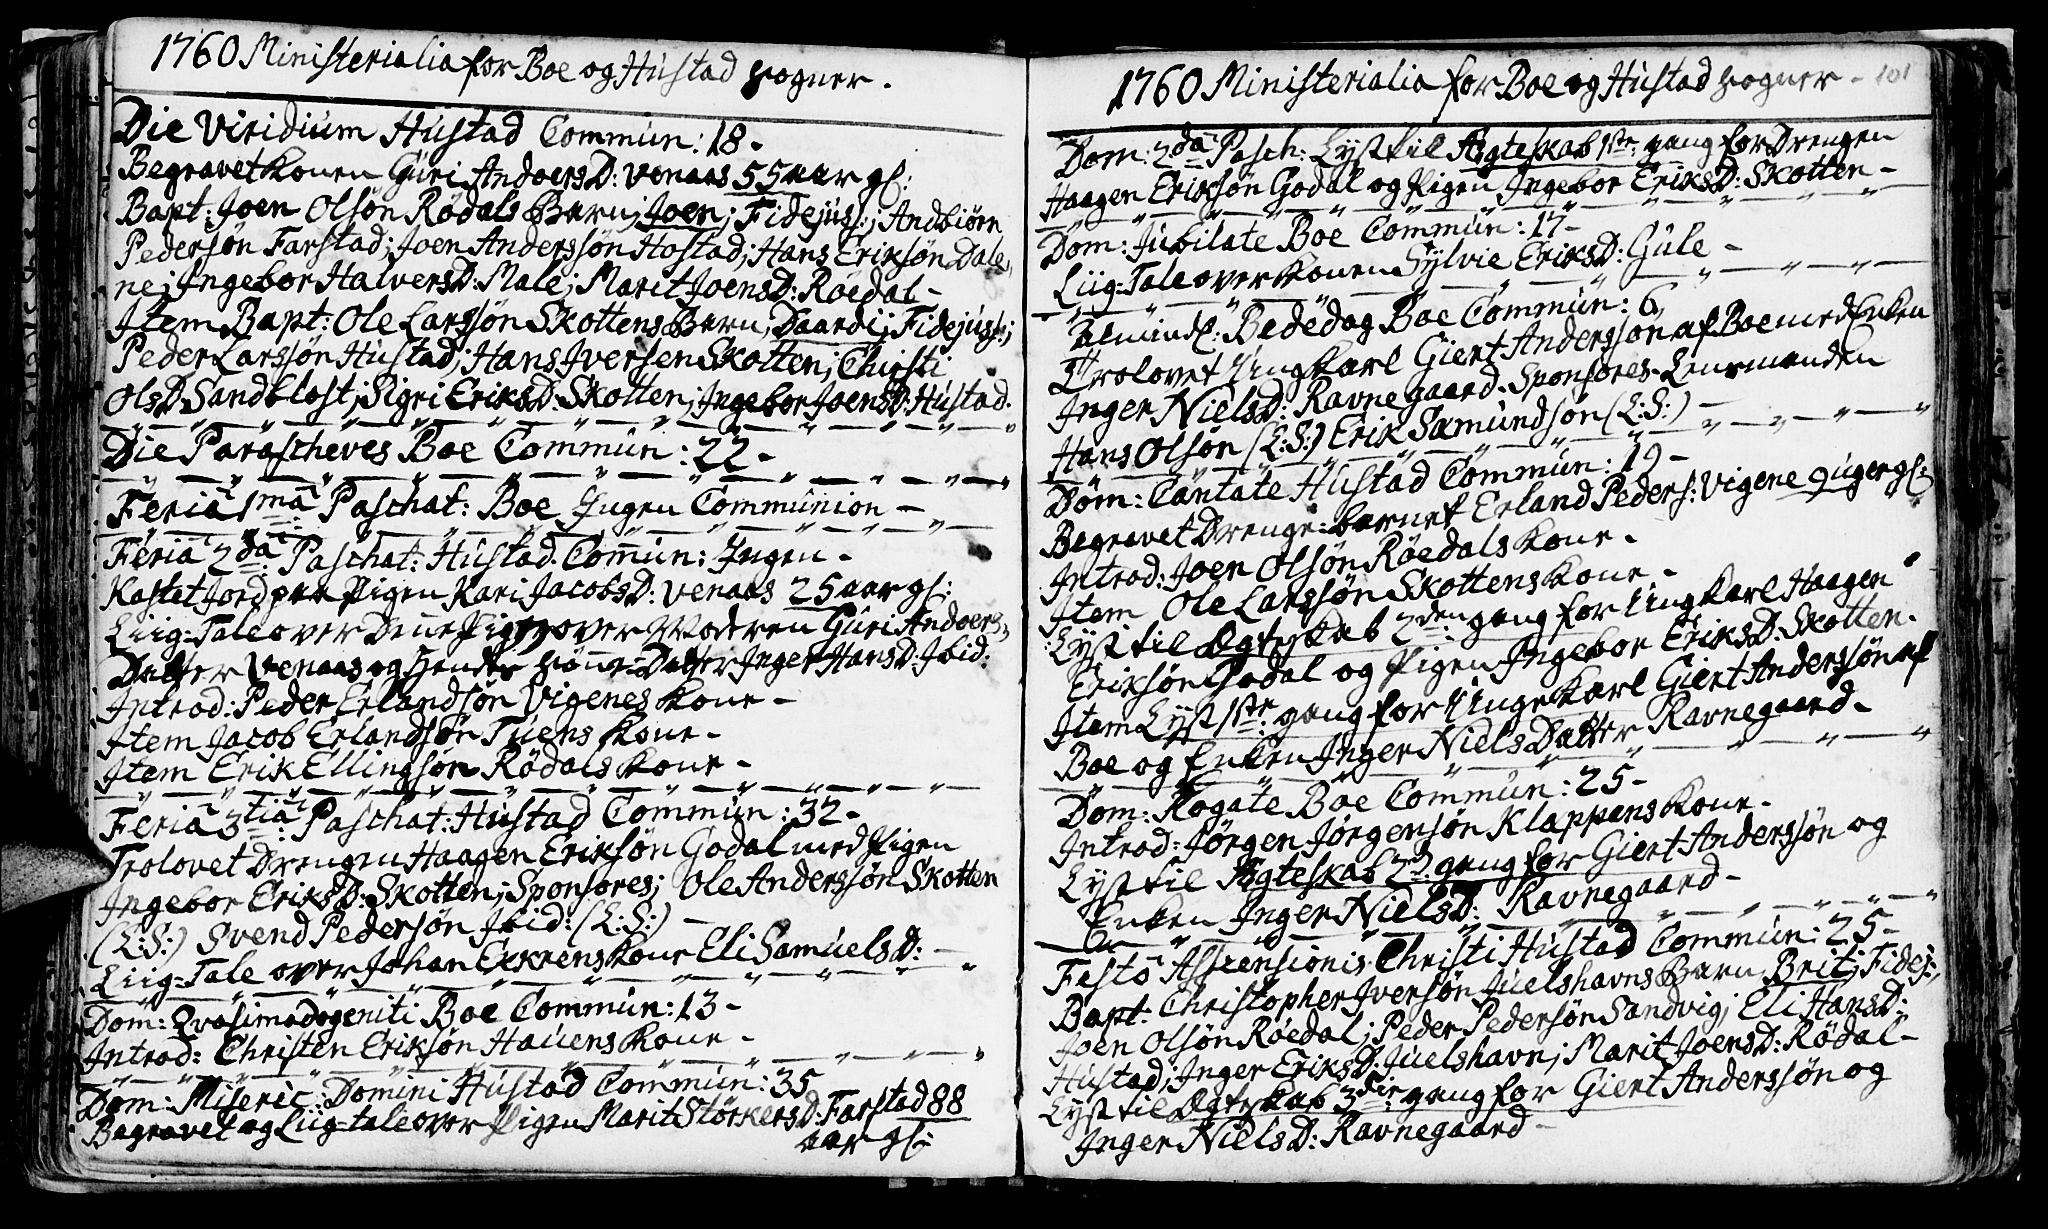 1760 Ministerialia for Boe og Hustad sogner.
Die Viridium Hustad Commun: 18-
Begravet Konen Guri AndoersD: Venaas 55 aar gl:
Bapt: Joen Olsøn Rødals Barn; Joen; Fidejuss:; Andbiørn
Pedersøn Farstad; Joen Anderssøn Hostad; Hans Eriksøn Dale-
ne; Ingebor HalversD: Male; Marit JoensD: Roedal-
Item Bapt: Ole Larssøn Skottens Barn; Daardi; Fidejuss:;
Peder Larssøn Hustad; Hans Iversen Skotten; Christi
OlsD. Sandblost; Sigri EriksD. Skotten; Ingebor JoensD: Hustad.
Die Parascheves Boe Commun: 22-
Feria 1ma Paschat: Boe Ingen Communion-
Feria 2da: Paschat: Hustad. Comun: Ingen-
Kastet Jord paa Pigen Kari JacobsD: Venaas 25 aar gl:
Liig-Tale over Denne Pige, over Moderen Guri Andoers-
Datter Venaas og Hendes Sønne-Datter Inger HansD: Ibid:
Introd: Peder Erlandsøn Vigenes Kone-
Item Jacob Erlandsøn Tuens Kone-
Item Erik Ellingsøn Rødals Kone-
Feria 3tia: Paschat: Hustad Commun: 32-
Trolovet Drengen Haagen Eriksøn Godal med Pigen
Ingebor EriksD: Skotten; Sponsores; Ole Anderssøn Skotten
(L:S:) Svend Pedersøn Ibid: (L:S:)-
Liig-Tale over Johan Exxrens Kone Eli SamuelsD:-
Dom: Qvasimodogeniti Boe Commun: 13-
Introd: Christen Eriksøn Hauens Kone-
Dom: Miseric: Domini Hustad Commun: 35
Begravet og Liig-tale over Pigen Marit StørkersD: Farstad 88
aar gl:
1760 Ministerialia for Boe og Hustad sogner- 101
Dom: 2da Pasch: Lyst til Ægteskab 1ste: gang for Drengen
Haagen Eriksøn Godal og Pigen Ingebor EriksD: Skotten-
Dom: Jubilate Boe Commun: 17-
Liig-Tale over Konen Sylvie EriksD: Gule-
Almindl: Bededag Boe Commun: 6,
Trolovet Ungkarl Giert Anderssøn af Boe med Enken
Inger NielsD: Ravnegaard. Sponsores. Lensmanden
Hans Olsøn (L:S:) Erik Sæmundsøn (L:S:)-
Dom: Cantate Hustad Commun: 19-
Begravet Drenge-barnet Erland Peders: Vigene 9 uger gl:
Introd: Joen Olsøn Røedals Kone-
Item Ole Larssøn Skottens Kone-
Lyst til Ægteskab 2den gang for Ungkarl Haagen
Eriksøn Godal og Pigen Ingebor EriksD: Skotten.
Item Lyst 1ste: gang for Ungekarl Giert Anderssøn af
Boe og Enken Inger Niels Datter Ravnegaard-
Dom: Rogate Boe Commun: 25-
Introd: Jørgen Jørgensøn Klappens Kone-
Lyst til Ægteskab 2d: gang for Giert Anderssøn og
Enken Inger NielsD: Ravnegaard-
Festo Ascensionis Christi Hustad Commun: 25-
Bapt: Christopher Iversøn Juelshavns Barn; Brit; Fidej:;
Joen Olsøn Røedal; Peder Pedersøn Sandvig; Eli HansD:
Hustad; Inger EriksD: Juelshavn; Marit JoensD: Rødal-
Lyst til Ægteskab 3die gang for Giert Anderssøn og
Inger NielsD: Ravnegaard-